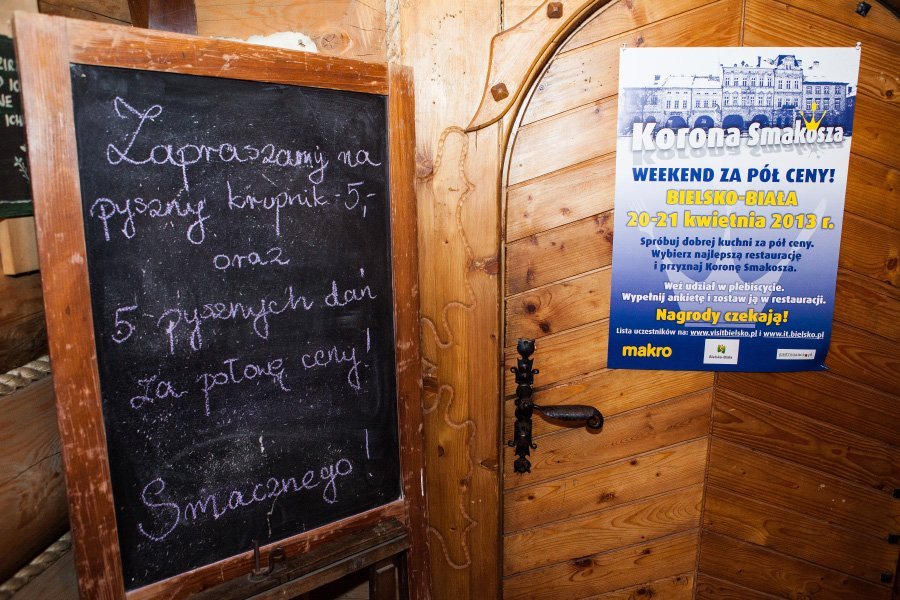 Zapraszamy na
pyszny krupnik -5,-
oraz
5 pysznych dań
za połowę ceny!
Smacznego!
Korona Smakosza
WEEKEND ZA PÓŁ CENY!
BIELSKO-BIAŁA
20-21 kwietnia 2013 r.
Spróbuj dobrej kuchni za pół ceny.
Wybierz najlepszą restaurację
i przyznaj Koronę Smakosza.
Weź udział w plebiscycie.
Wypełnij ankietę i zostaw ją w restauracji.
Nagrody czekają!
Lista uczestników na: www.visitbielsko.pl i www.it.bielsko.pl
makro
Bielsko-Biała